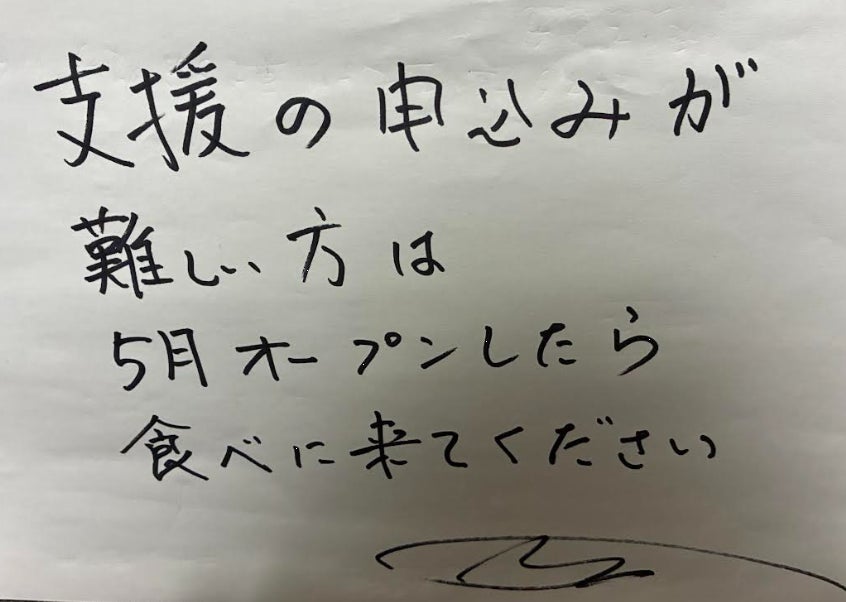 支援の申込みが
難しい方は
5月オープンしたら
食べに来てください